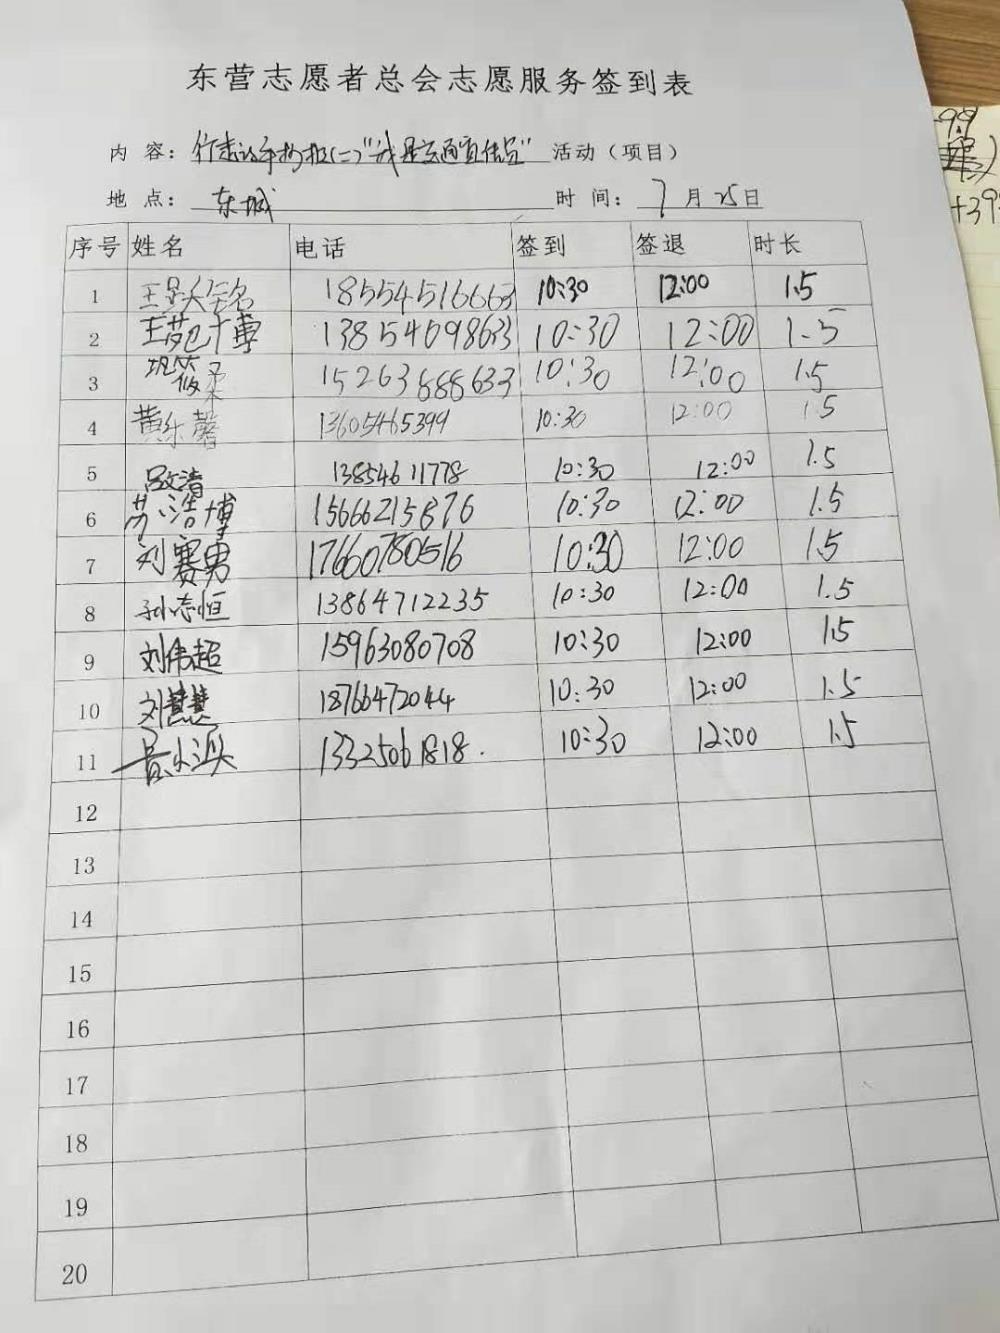 东营志愿者总会志愿服务签到表
内 容： 行走的手抄报(二)"我是交通宣传员" 活动（项目）
地 点： 东城 时 间： 7 月 25 日
序号 姓名 电话 签到 签退 时长
1 18554516663 10:30 12:00 1.5
2 王苑博 13854098633 10:30 12:00 1.5
3 巩筱柔 15263888633 10:30 12:00 1.5
4 黄乐馨 13605465399 10:30 12:00 1.5
5 吕文清 13854611778 10:30 12:00 1.5
6 苏浩博 15666215876 10:30 12:00 1.5
7 刘赛男 17660780516 10:30 12:00 1.5
8 孙志恒 13864712235 10:30 12:00 1.5
9 刘伟超 15963080708 10:30 12:00 1.5
10 刘慧慧 18766472044 10:30 12:00 1.5
11 13325061818. 10:30 12:00 1.5
12
13
14
15
16
17
18
19
20